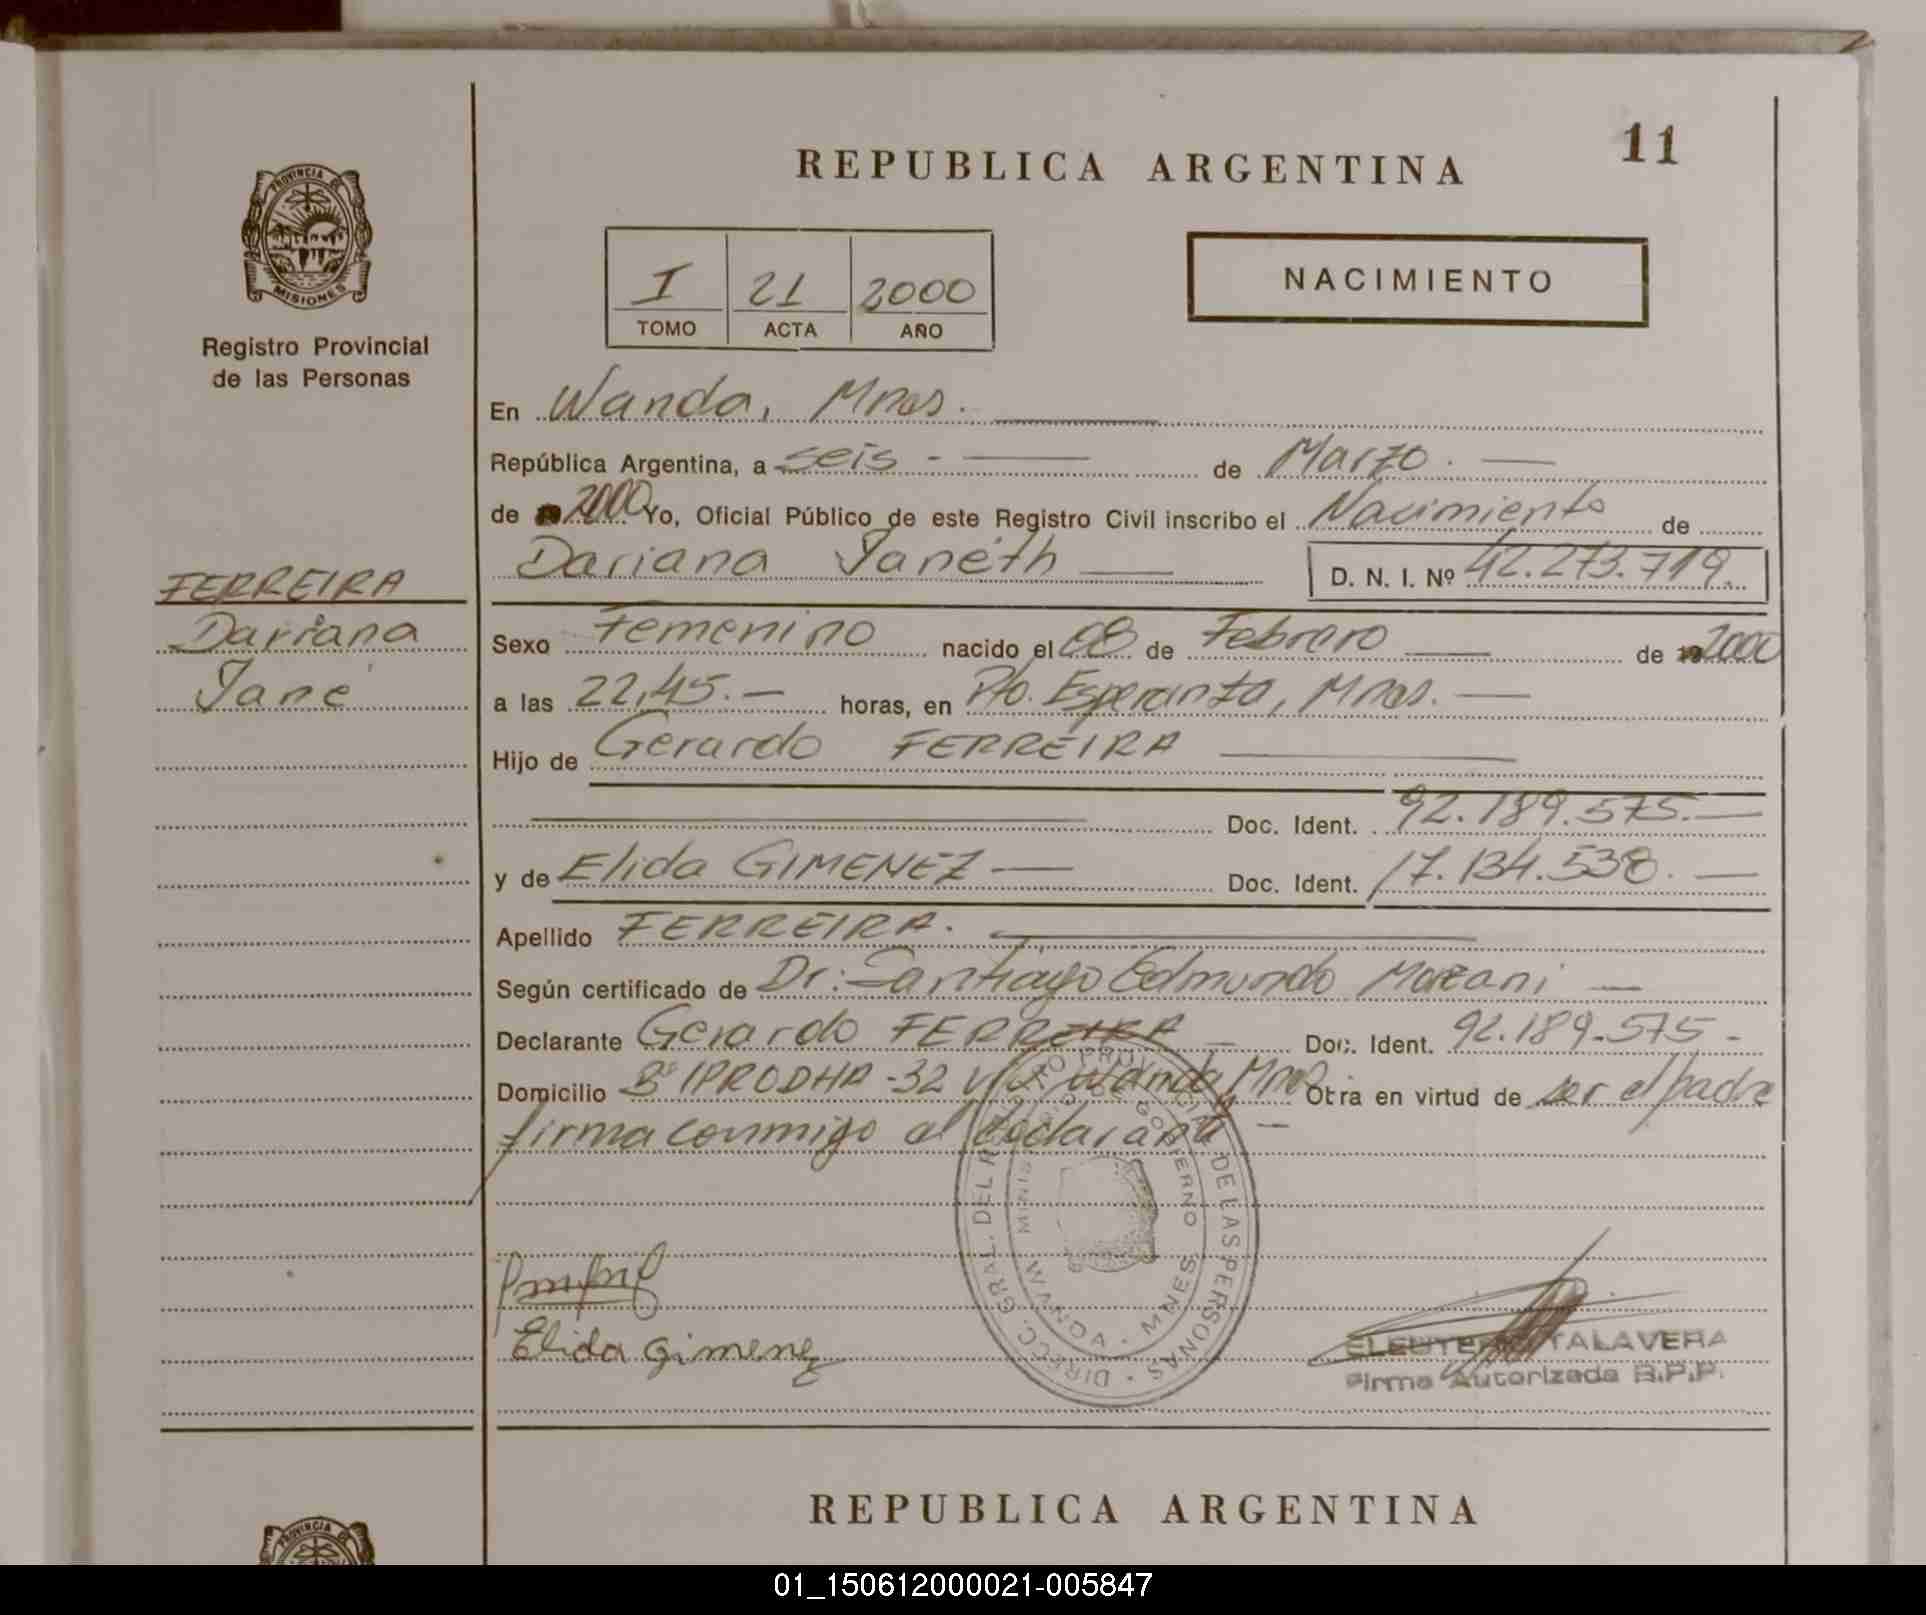 11
REPUBLICA ARGENTINA
PROVINCIA DE
MISIONES
Registro Provincial
de las Personas
I 21 2000
TOMO ACTA AÑO
NACIMIENTO
En Wanda, Mnes.
República Argentina, a seis - de Marzo.
de 2000 Yo, Oficial Público de este Registro Civil inscribo el Nacimiento de
Dariana Janéth D. N. I. Nº 42.273.719.
FERREIRA
Dariana
Jané
Sexo Femenino nacido el 08 de Febrero de 2000
a las 22,45.- horas, en Pto. Esperanza, Mnes.
Hijo de Gerardo FERREIRA
Doc. Ident. 92.189.575.-
y de Elida GIMENEZ Doc. Ident. 17.134.538.-
Apellido FERREIRA.
Según certificado de Dr: Santiago Edmundo
Declarante Gerardo FERREIRA Doc. Ident. 92.189.575-
Domicilio Bº IPRODHA-32 Wanda, Mnes Otra en virtud de ser el padre
firma conmigo el declarante
Elida gimenez
DIRECC. GRAL. DEL REGISTRO PROVINCIAL DE LAS PERSONAS
MINISTERIO DE GOBIERNO
WANDA - MNES
ELEUTERIO TALAVERA
Firma Autorizada R.P.P.
REPUBLICA ARGENTINA
PROVINCIA DE
01_150612000021-005847